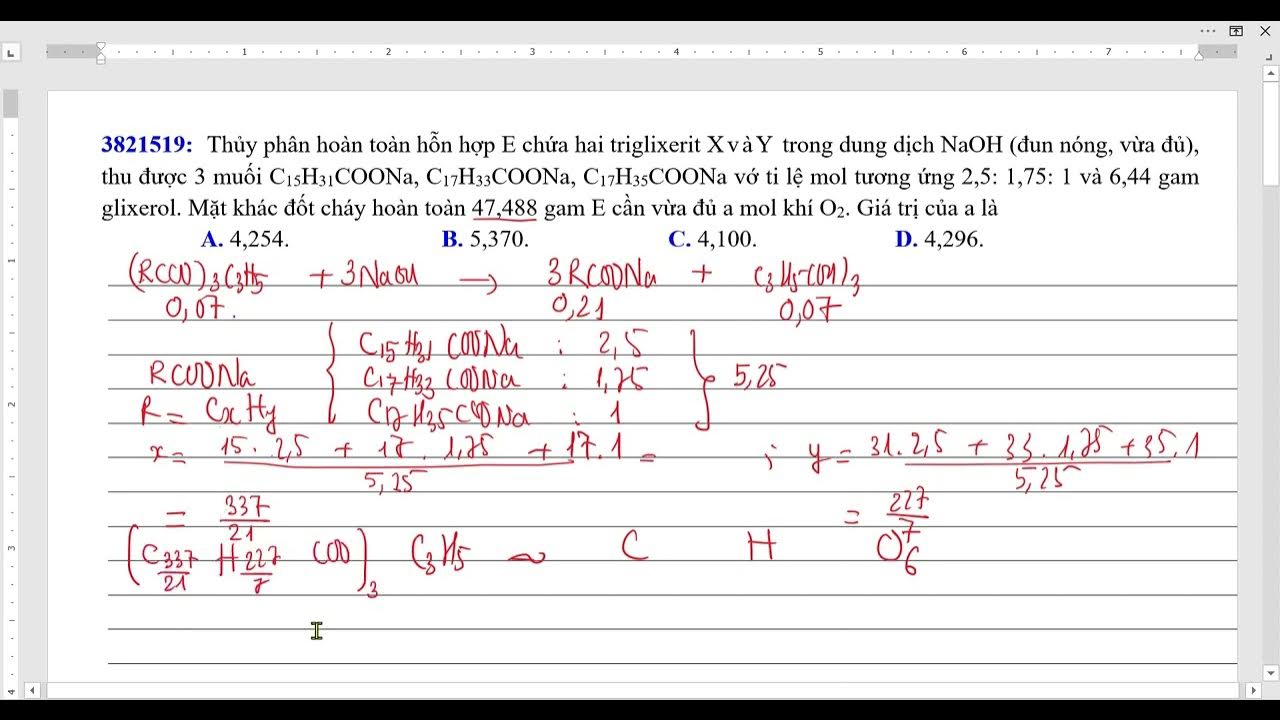 3821519: Thủy phân hoàn toàn hỗn hợp E chứa hai triglixerit X và Y trong dung dịch NaOH (đun nóng, vừa đủ),
thu được 3 muối C₁₅H₃₁COONa, C₁₇H₃₃COONa, C₁₇H₃₅COONa vớ ti lệ mol tương ứng 2,5: 1,75: 1 và 6,44 gam
glixerol. Mặt khác đốt cháy hoàn toàn 47,488 gam E cần vừa đủ a mol khí O₂. Giá trị của a là
A. 4,254. B. 5,370. C. 4,100. D. 4,296.
(RCOO)₃C₃H₅ + 3NaOH → 3RCOONa + C₃H₅(OH)₃
0,07. 0,21 0,07
C₁₅H₃₁COONa : 2,5
RCOONa C₁₇H₃₃COONa : 1,75 5,25
R = CxHy C₁₇H₃₅COONa : 1
x = (15. 2,5 + 17. 1,75 + 17.1)/5,25 = ; y = (31.2,5 + 33.1,75 + 35.1)/5,25
= 337/21 = 227/7
(C337/21 H227/7 COO)₃ C₃H₅ ~ C H O₆